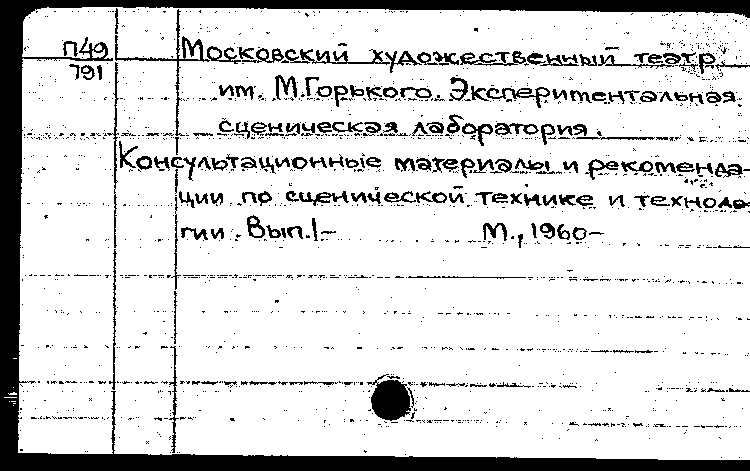 П49 Московский художественный театр
791 им. М.Горького. Экспериментальная
сценическая лаборатория.
Консультационные материалы и рекоменда-
ции по сценической технике и техноло-
гии. Вып.1– М., 1960–